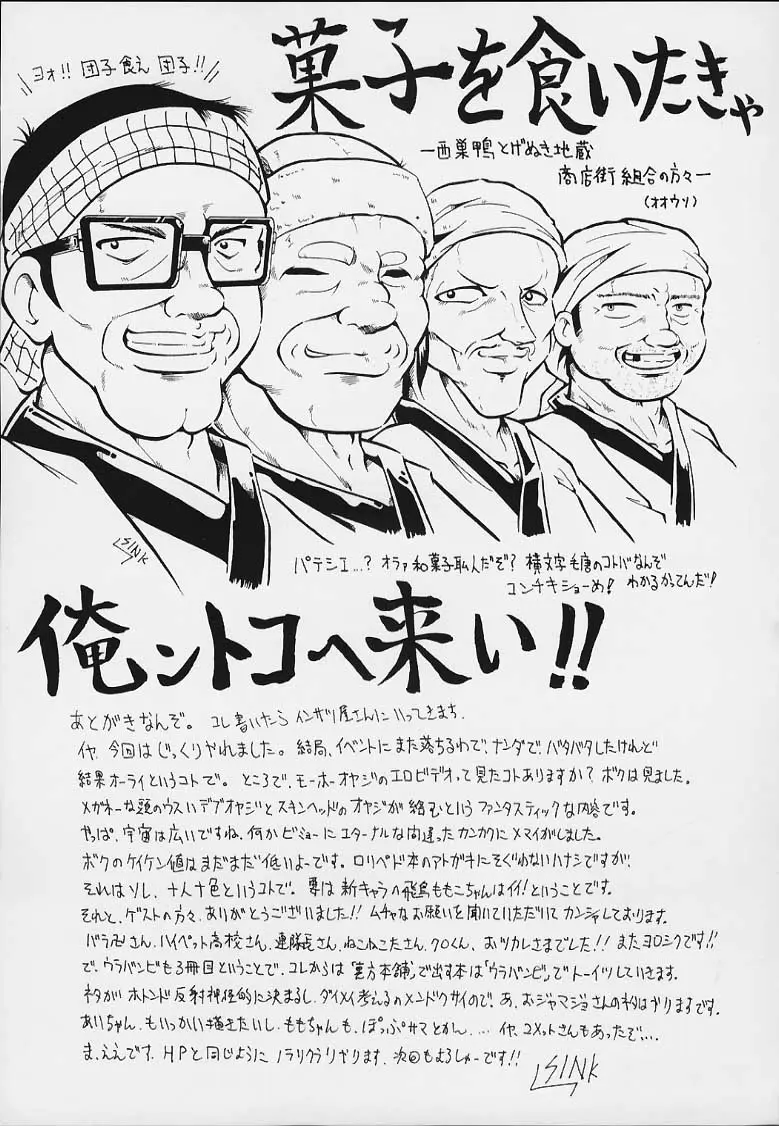 ヨォ!! 団子食え 団子!!
菓子を食いたきゃ
ー西巣鴨とげぬき地蔵
商店街組合の方々ー
(オオウソ)
SINK
パテシエ…? オラァ和菓子職人だぞ? 横文字毛唐のコトバなんぞ
コンチキショーめ! わかるかってんだ!
俺ントコへ来い!!
あとがきなんぞ。 コレ書いたらインサツ屋さんにいってきます.
イヤ、今回はじっくりやれました。結局、イベントにまた落ちるわで、ナンダで、バタバタしたけれど
結果オーライというコトで。ところで、モーホーオヤジのエロビデオって見たコトありますか? ボクは見ました。
メガネーな頭のウスいデブオヤジとスキンヘッドのオヤジが絡むというファンタスティックな内容です。
やっぱ、宇宙は広いですね、何かビミョーにエターナルな間違ったカンカクにメマイがしました。
ボクのケイケン値はまだまだ低いよーです。ロリペド本のアトガキにそぐわないハナシですが、
それはソレ、十人十色というコトで。要は新キャラの飛鳥ももこちゃんはイイ!ということです。
それと、ゲストの方々、ありがとうございました!! ムチャなお願いを聞いていただいてカンシャしております.
バラ卍さん、ハイペット高校さん、連隊長さん、ねこねこたさん、クロくん、おツカレさまでした!! またヨロシクです!!
で、ウラバンビも3冊目ということで、コレからは「裏方本舗」で出す本は「ウラバンビ」でトーイツしていきます。
ネタがホトンド反射神経的に決まるし、ダイメイ考えるのメンドウサイので。あ、おジャマジョさんのネタはやりますです。
あいちゃん、もいっかい描きたいし、ももちゃんも、ぽっぷサマとかん、… イヤ、コメットさんもあったぞ…。
ま、ええです、HPと同じようにノラリクラリやります、次回もよろしゅーです!!
SINK